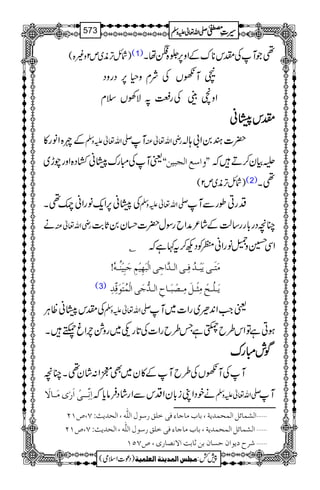 سیرتِ مصطفیٰ صلی اللہ تعالیٰ علیہ وسلم 573
تھی جو آپ کی مقدس ناک کے اوپر جلوہ فگن تھا۔(1) (شمائل ترمذی ص۲ وغیرہ)
نیچی آنکھوں کی شرم و حیا پر درود
اونچی بینی کی رفعت پہ لاکھوں سلام
مقدس پیشانی
حضرت ہند بن ابی ہالہ رضی اللہ تعالیٰ عنہ آپ صلی اللہ تعالیٰ علیہ وسلم کے چہرۂ انور کا
حلیہ بیان کرتے ہیں کہ ”واسع الجبین“ یعنی آپ کی مبارک پیشانی کشادہ اور چوڑی
تھی۔(2) (شمائل ترمذی ص۲)
قدرتی طور سے آپ صلی اللہ تعالیٰ علیہ وسلم کی پیشانی پر ایک نورانی چمک تھی۔
چنانچہ دربار رسالت کے شاعر مداح رسول حضرت حسان بن ثابت رضی اللہ تعالیٰ عنہ نے
اسی حسین و جمیل نورانی منظر کو دیکھ کر یہ کہا ہے کہ ؎
مَتٰی یَبْدُ فِی الدَّاجِی الْبَهِیْمِ جَبِیْنُهٗ!
یَلُحْ مِثْلَ مِصْبَاحِ الدُّجَی الْمُتَوَقِّدِ (3)
یعنی جب اندھیری رات میں آپ صلی اللہ تعالیٰ علیہ وسلم کی مقدس پیشانی ظاہر
ہوتی ہے تو اس طرح چمکتی ہے جس طرح رات کی تاریکی میں روشن چراغ چمکتے ہیں۔
گوش مبارک
آپ کی آنکھوں کی طرح آپ کے کان میں بھی معجزانہ شان تھی۔ چنانچہ
آپ صلی اللہ تعالیٰ علیہ وسلم نے خود اپنی زبان اقدس سے ارشاد فرمایا کہ اِنِّیْ اَرٰی مَا لَا
......الشمائل المحمدیة، باب ماجاء فی خلق رسول اللّٰه، الحدیث:۷، ص۲۱
......الشمائل المحمدیة، باب ماجاء فی خلق رسول اللّٰه، الحدیث:۷، ص۲۱
......شرح دیوان حسان بن ثابت الانصاری، ص۱۵۷
پیش کش: مجلس المدینة العلمیة (دعوتِ اسلامی)